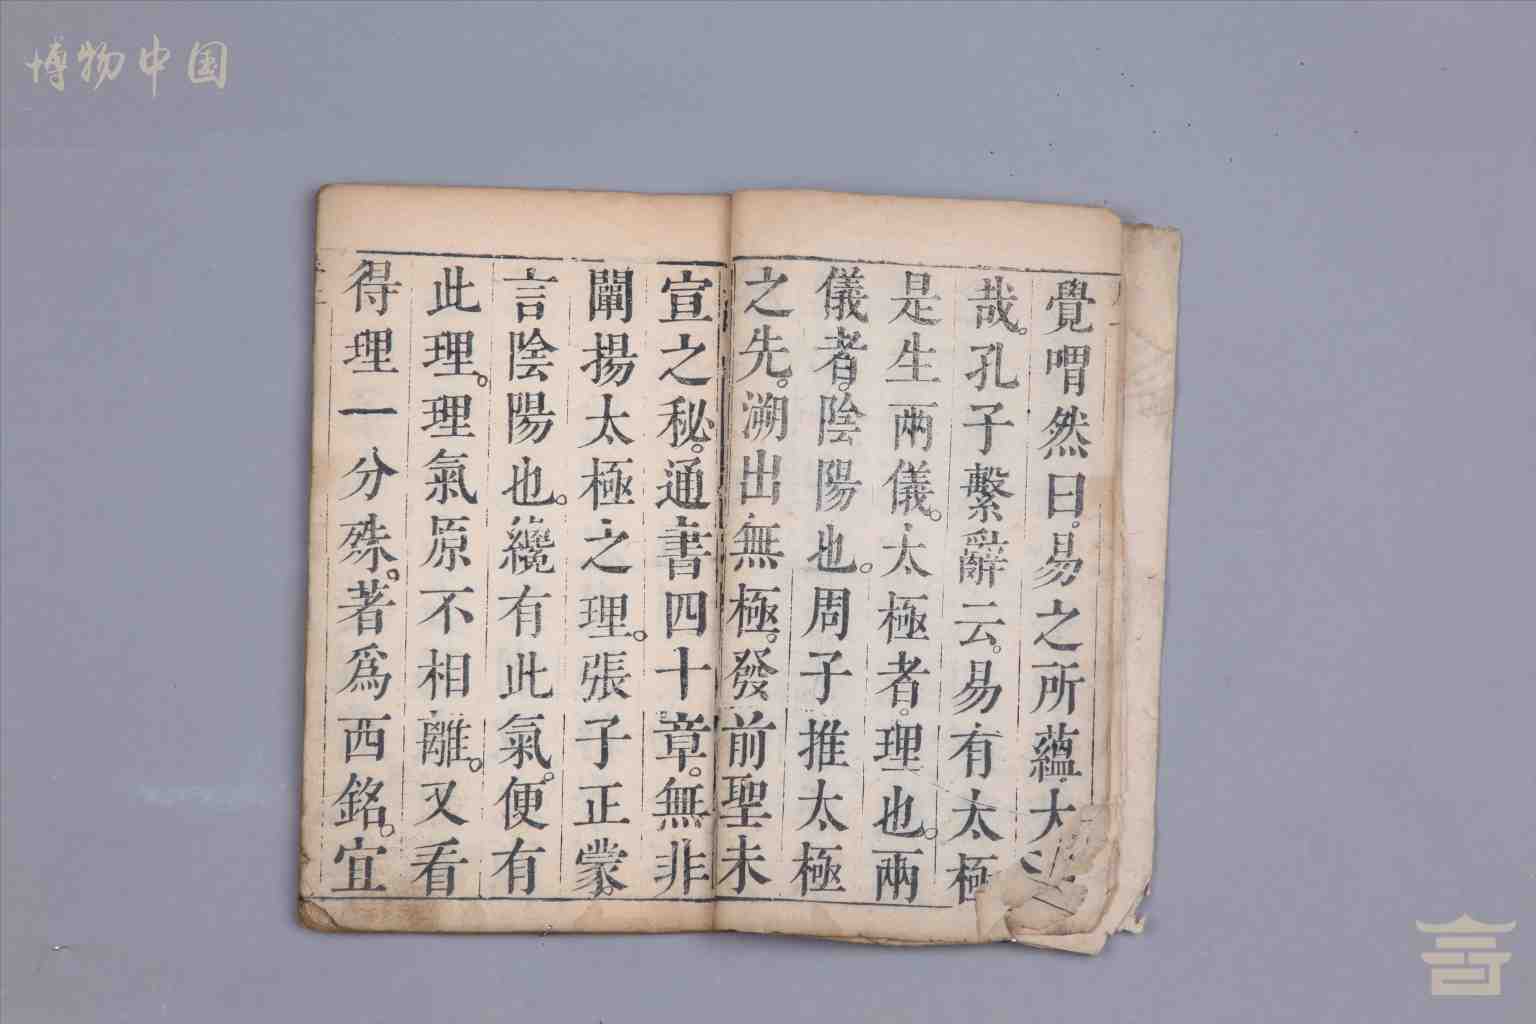 博物中国
覺喟然曰。易之所蘊大
哉。孔子繫辭云。易有太極
是生兩儀。太極者。理也。兩
儀者。陰陽也。周子推太極
之先。溯出無極。發前聖未
宣之秘。通書四十章。無非
闡揚太極之理。張子正蒙。
言陰陽也。纔有此氣。便有
此理。理氣原不相離。又看
得理一分殊。著爲西銘。宜